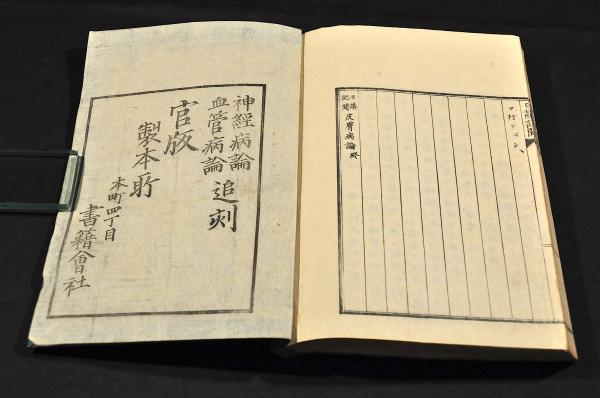 日講
記聞
皮膚病論終
神經病論
血管病論
追刻
官版
製本所
本町四丁目
書籍會社